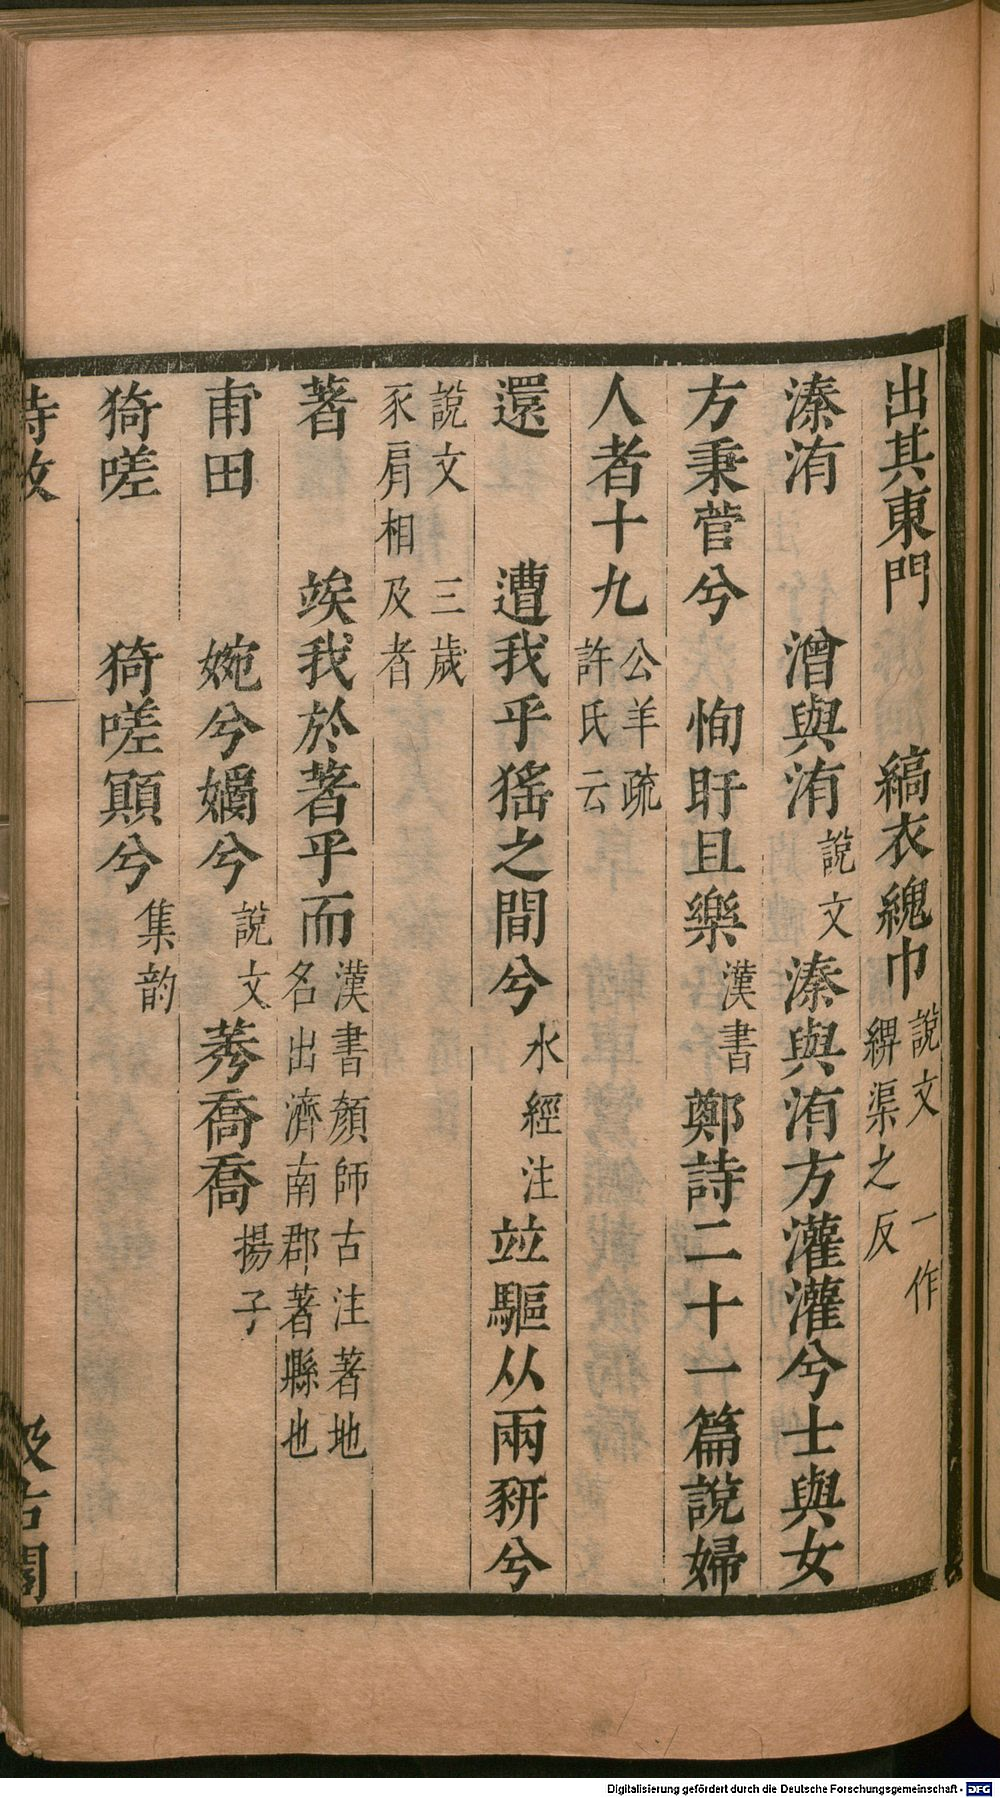 出其東門　縞衣䌴巾說文一作綥渠之反
溱洧　潧與洧說文溱與洧方灌灌兮士與女
方秉菅兮　恂盱且樂漢書鄭詩二十一篇說婦
人者十九公羊疏許氏云
還　遭我乎猺之間兮水經注竝驅从兩豣兮
說文三歲豕肩相及者
著　竢我於著乎而漢書顏師古注著地名出濟南郡著縣也
甫田　婉兮嬺兮說文莠喬喬揚子
猗嗟　猗嗟顚兮集韵
詩攷　汲古閣
Digitalisierung gefördert durch die Deutsche Forschungsgemeinschaft - DFG